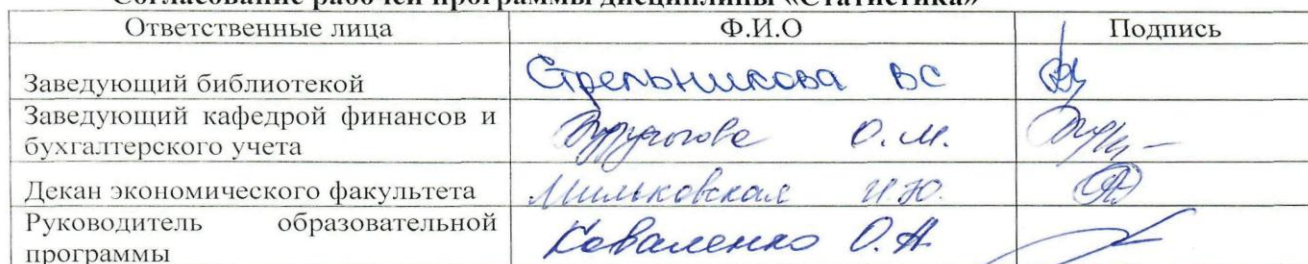 Согласование рабочей программы дисциплины «Статистика»
Ответственные лица Ф.И.О Подпись
Заведующий библиотекой Стрельникова ВС
Заведующий кафедрой финансов и
бухгалтерского учета О.М.
Декан экономического факультета Мильковская И.Ю.
Руководитель образовательной
программы Коваленко О.А.